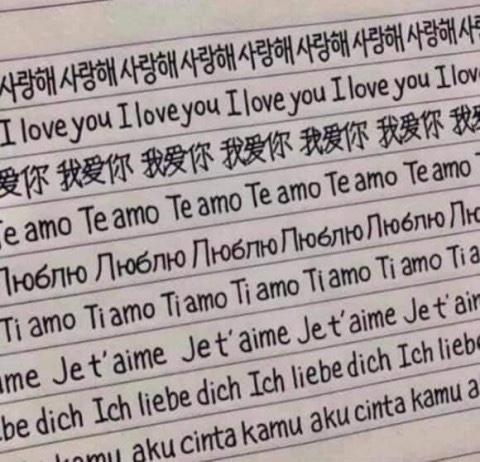 사랑해 사랑해 사랑해 사랑해 사랑해 사랑해 사랑해 사랑해 사
I love you I love you I love you I love you I lov
爱你 我爱你 我爱你 我爱你 我爱你 我爱你 我
Te amo Te amo Te amo Te amo Te amo Te amo T
Люблю Люблю Люблю Люблю Люблю Лю
Ti amo Ti amo Ti amo Ti amo Ti amo Ti amo Ti a
ime Je t'aime Je t'aime Je t'aime Je t'ai
be dich Ich liebe dich Ich liebe dich Ich liebe
kamu aku cinta kamu aku cinta kamu a